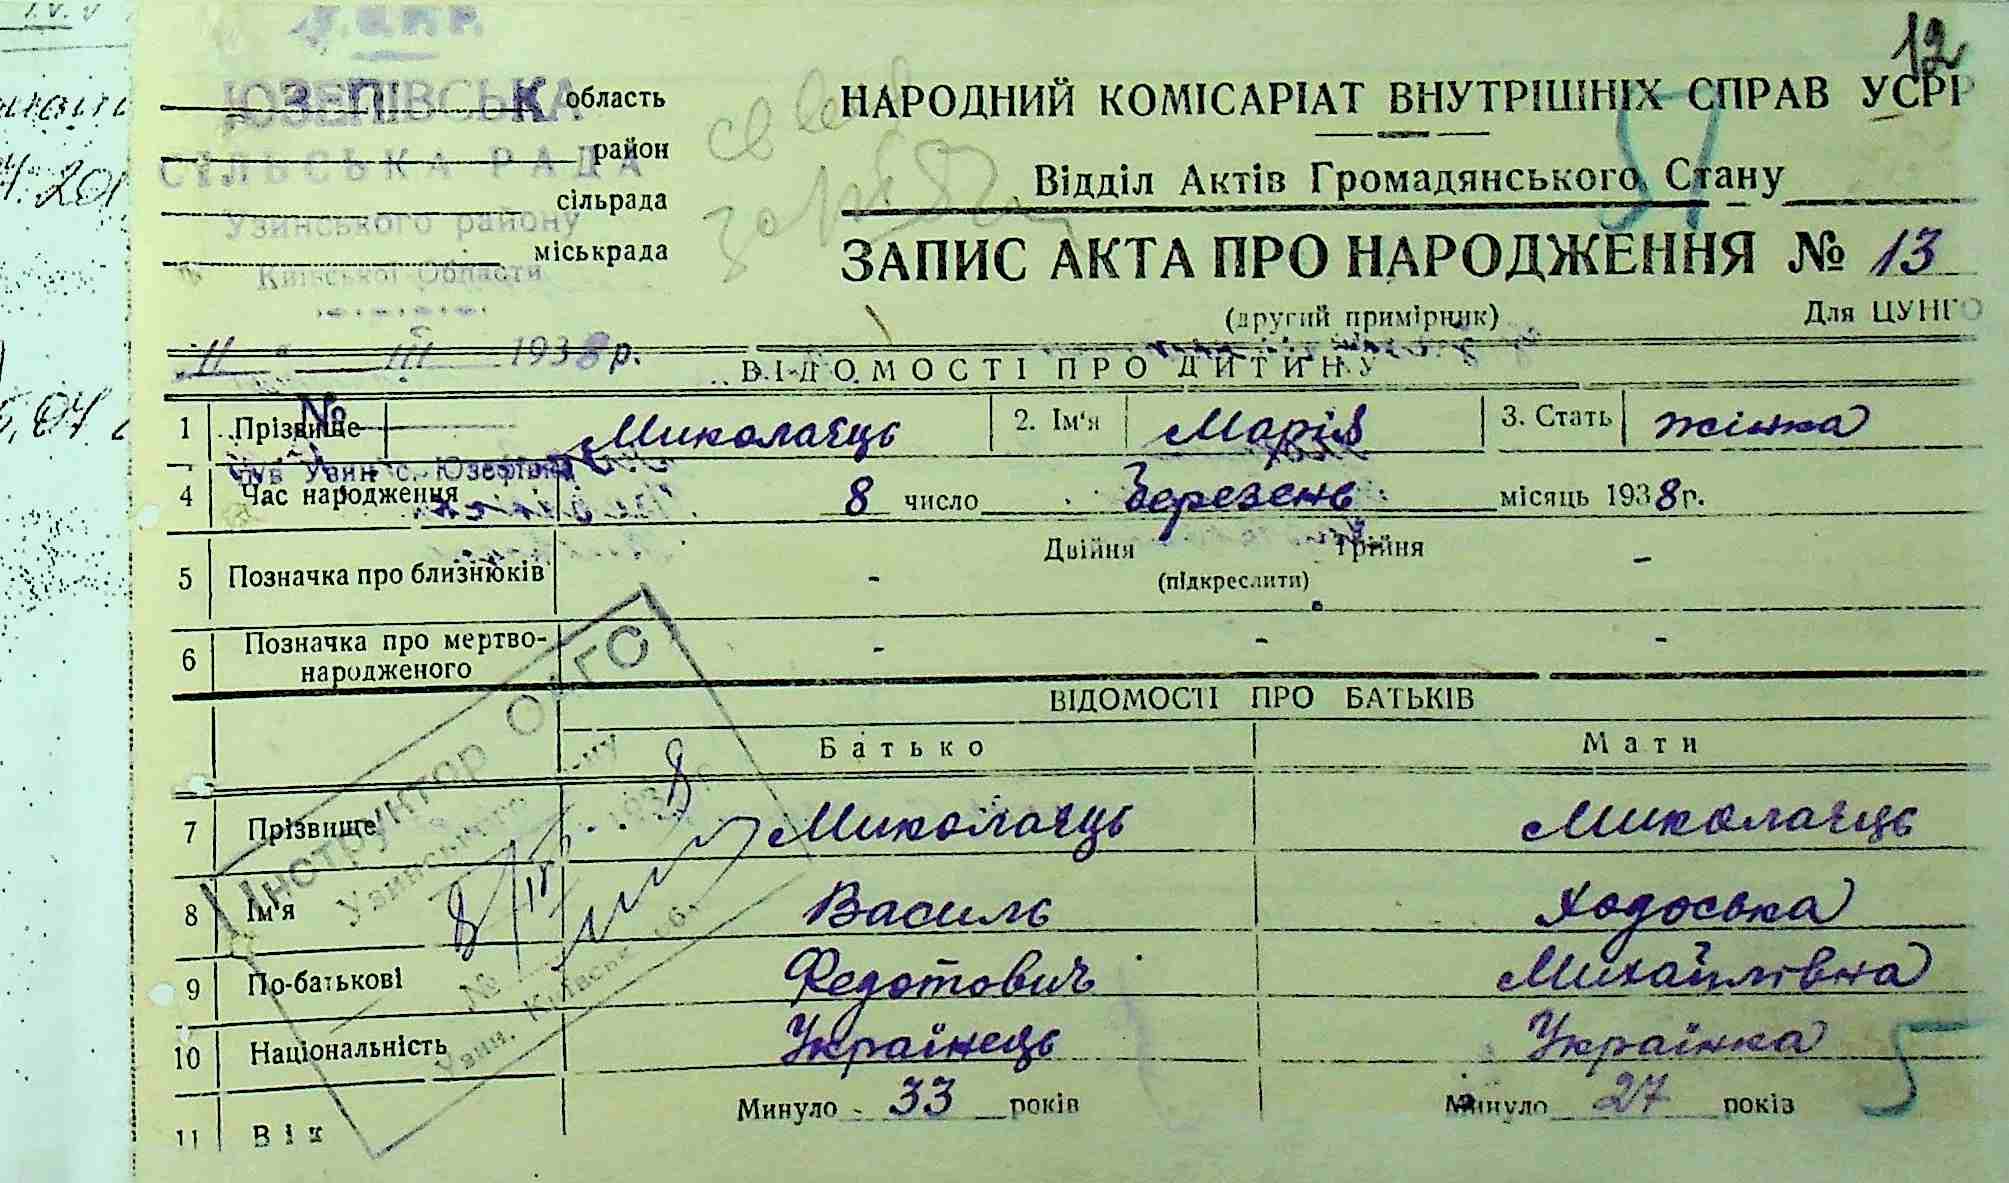 12
У.С.Р.Р.
ЮЗЕПІВСЬКА
СІЛЬСЬКА РАДА
Узинського району
Київської Области
область
район
сільрада
міськрада
НАРОДНИЙ КОМІСАРІАТ ВНУТРІШНІХ СПРАВ УСРР
Відділ Актів Громадянського Стану
ЗАПИС АКТА ПРО НАРОДЖЕННЯ № 13
(другий примірник) Для ЦУНГО
11 " III 1938 р.
ВІДОМОСТІ ПРО ДИТИНУ
1 Прізвище Миколаєць 2. Ім'я Марія 3. Стать жінка
№
4 Час народження 8 число Березень місяць 1938 р.
5 Позначка про близнюків - Двійня Трійня -
(підкреслити)
6 Позначка про мертво-
народженого - - -
ВІДОМОСТІ ПРО БАТЬКІВ
Батько Мати
7 Прізвище Миколаєць Миколаєць
8 Ім'я Василь Ходоська
9 По-батькові Федотович Михайлівна
10 Національність Українець Українка
11 Вік Минуло 33 років Минуло 27 років
Інструктор ОАГС
Узинського
№
Узин, Київськ. об.
5